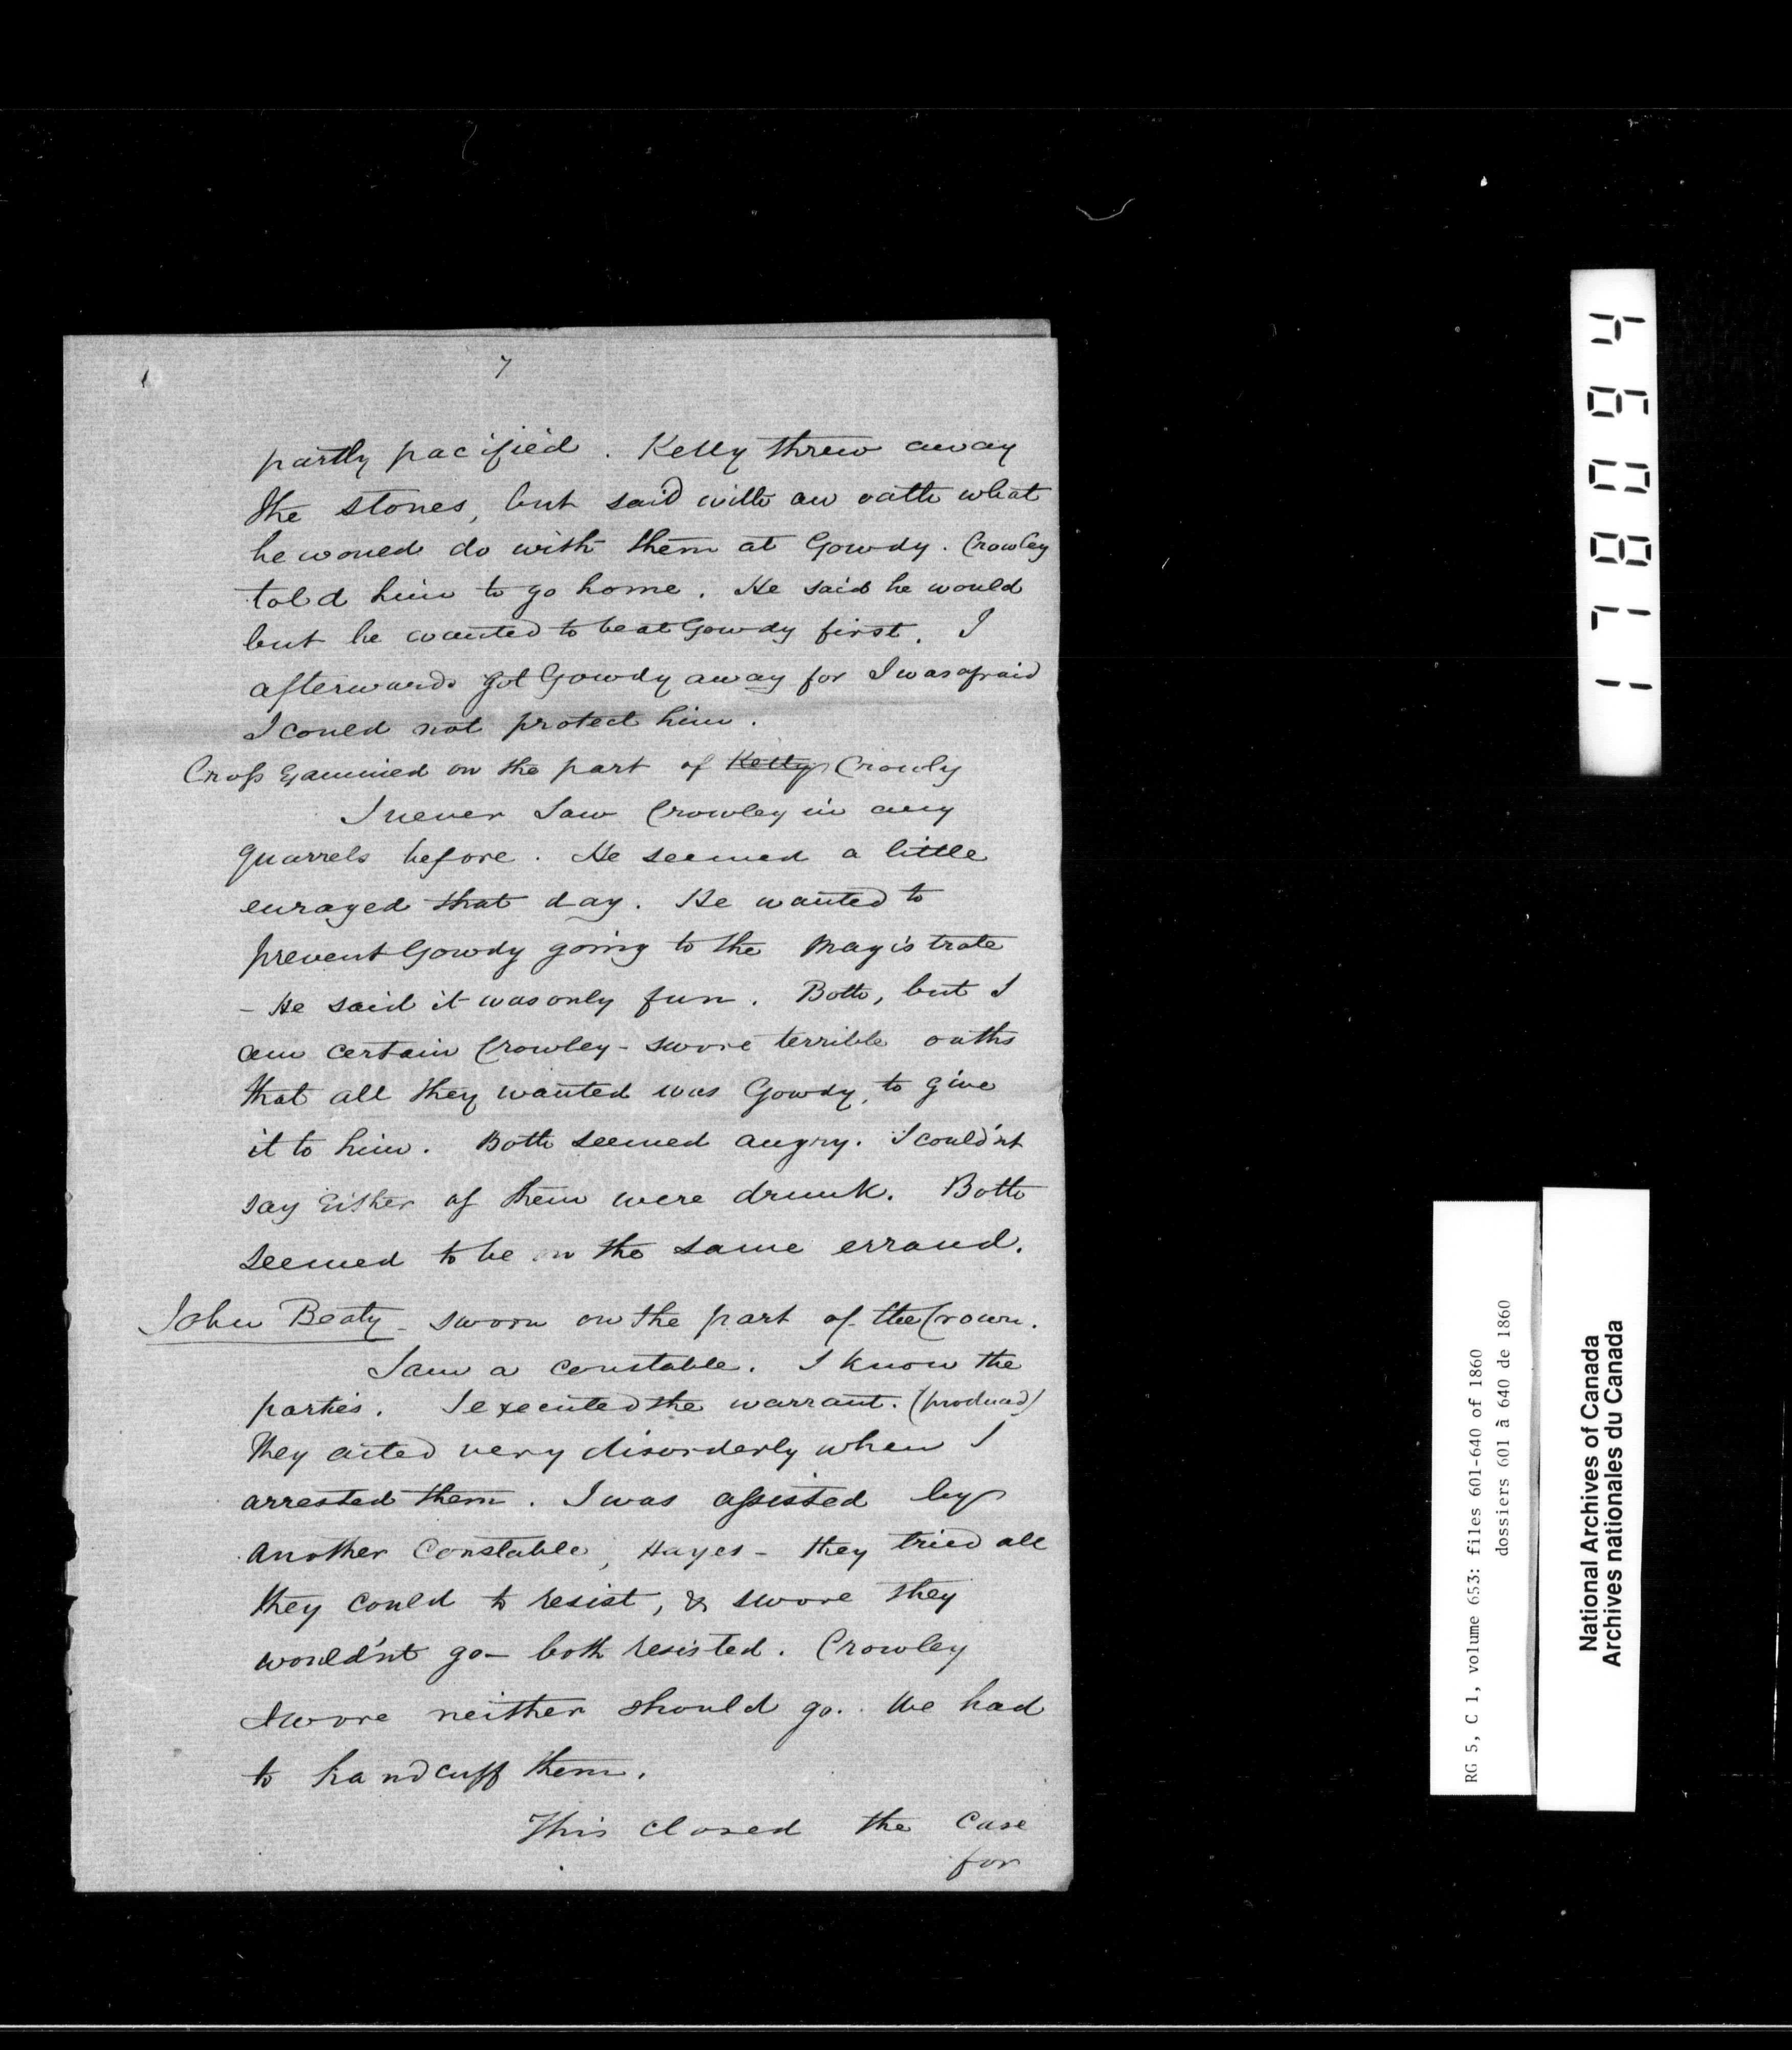 7
partly pacified. Kelly threw away
the stones, but said with an oath what
he would do with them at Gowdy. Crowley
told him to go home. He said he would
but he wanted to beat Gowdy first. I
afterwards got Gowdy away for I was afraid
I could not protect him.
Cross Examined on the part of Kelly Crowly
I never saw Crowley in any
quarrels before. He seemed a little
enraged that day. He wanted to
prevent Gowdy going to the Magistrate
- He said it was only fun. Both, but I
am certain Crowley - swore terrible oaths
that all they wanted was Gowdy, to give
it to him. Both seemed angry. I could'nt
say Either of them were drunk. Both
seemed to be on the same errand.
John Beaty - sworn on the part of the Crown.
I am a constable. I know the
parties. I executed the warrant. (produced)
They acted very disorderly when I
arrested them. I was assisted by
another Constable, Hayes - they tried all
they could to resist, & swore they
would'nt go - both resisted. Crowley
swore neither should go. We had
to handcuff them.
This closed the Case
for
178094
RG 5, C 1, volume 653: files 601-640 of 1860
dossiers 601 à 640 de 1860
National Archives of Canada
Archives nationales du Canada